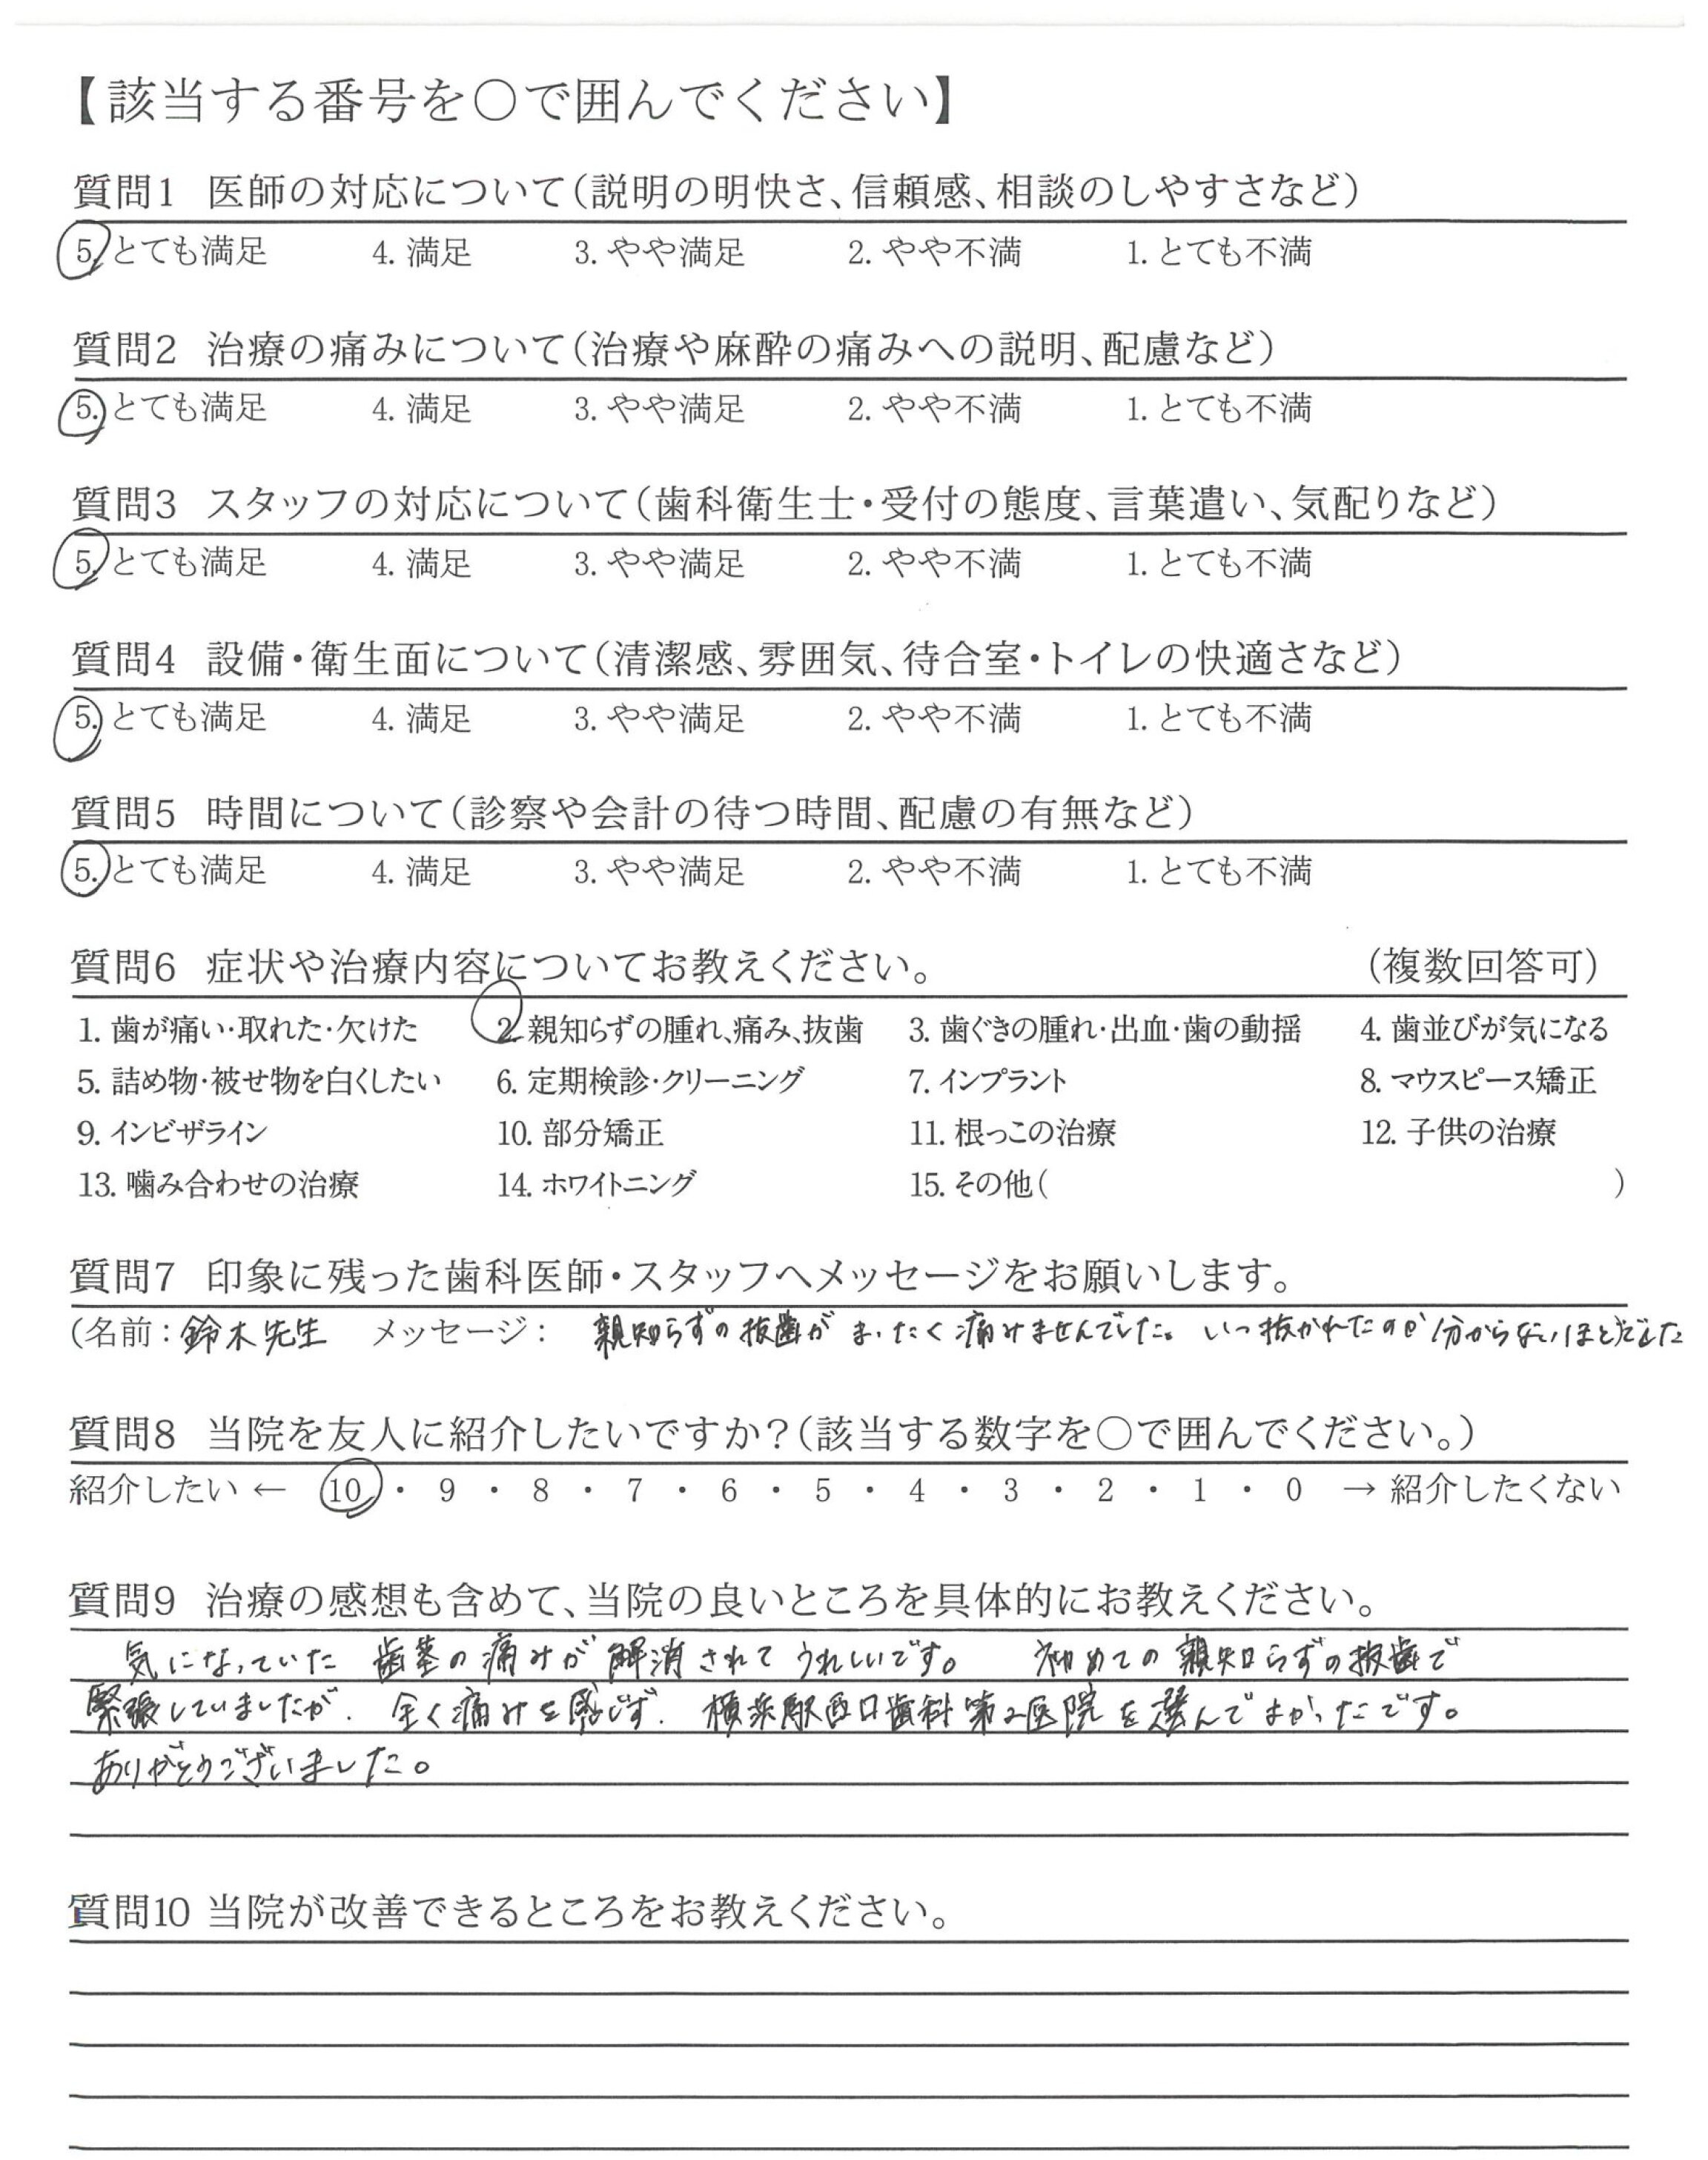 【該当する番号を〇で囲んでください】
質問1 医師の対応について(説明の明快さ、信頼感、相談のしやすさなど)
5. とても満足 4. 満足 3. やや満足 2. やや不満 1. とても不満
質問2 治療の痛みについて(治療や麻酔の痛みへの説明、配慮など)
5. とても満足 4. 満足 3. やや満足 2. やや不満 1. とても不満
質問3 スタッフの対応について(歯科衛生士・受付の態度、言葉遣い、気配りなど)
5. とても満足 4. 満足 3. やや満足 2. やや不満 1. とても不満
質問4 設備・衛生面について(清潔感、雰囲気、待合室・トイレの快適さなど)
5. とても満足 4. 満足 3. やや満足 2. やや不満 1. とても不満
質問5 時間について(診察や会計の待つ時間、配慮の有無など)
5. とても満足 4. 満足 3. やや満足 2. やや不満 1. とても不満
質問6 症状や治療内容についてお教えください。 (複数回答可)
1. 歯が痛い・取れた・欠けた 2. 親知らずの腫れ、痛み、抜歯 3. 歯ぐきの腫れ・出血・歯の動揺 4. 歯並びが気になる
5. 詰め物・被せ物を白くしたい 6. 定期検診・クリーニング 7. インプラント 8. マウスピース矯正
9. インビザライン 10. 部分矯正 11. 根っこの治療 12. 子供の治療
13. 噛み合わせの治療 14. ホワイトニング 15. その他( )
質問7 印象に残った歯科医師・スタッフへメッセージをお願いします。
(名前：鈴木先生 メッセージ： 親知らずの抜歯がまったく痛みませんでした。いつ抜かれたのか分からないほどでした
質問8 当院を友人に紹介したいですか？(該当する数字を〇で囲んでください。)
紹介したい ← 10 ・ 9 ・ 8 ・ 7 ・ 6 ・ 5 ・ 4 ・ 3 ・ 2 ・ 1 ・ 0 → 紹介したくない
質問9 治療の感想も含めて、当院の良いところを具体的にお教えください。
気になっていた歯茎の痛みが解消されてうれしいです。 初めての親知らずの抜歯で
緊張していましたが、全く痛みを感じず、横浜駅西口歯科第2医院を選んでよかったです。
ありがとうございました。
質問10 当院が改善できるところをお教えください。